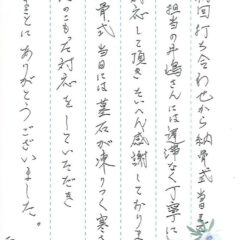 回打ち合わせから納骨式当日ま
担当の井嶋さんには遅滞なく丁寧に
対応して頂きたいへん感謝しておりま
骨式当日には墓石が凍りつく寒さ
のこもった対応をしていただき
まことにありがとうございました。